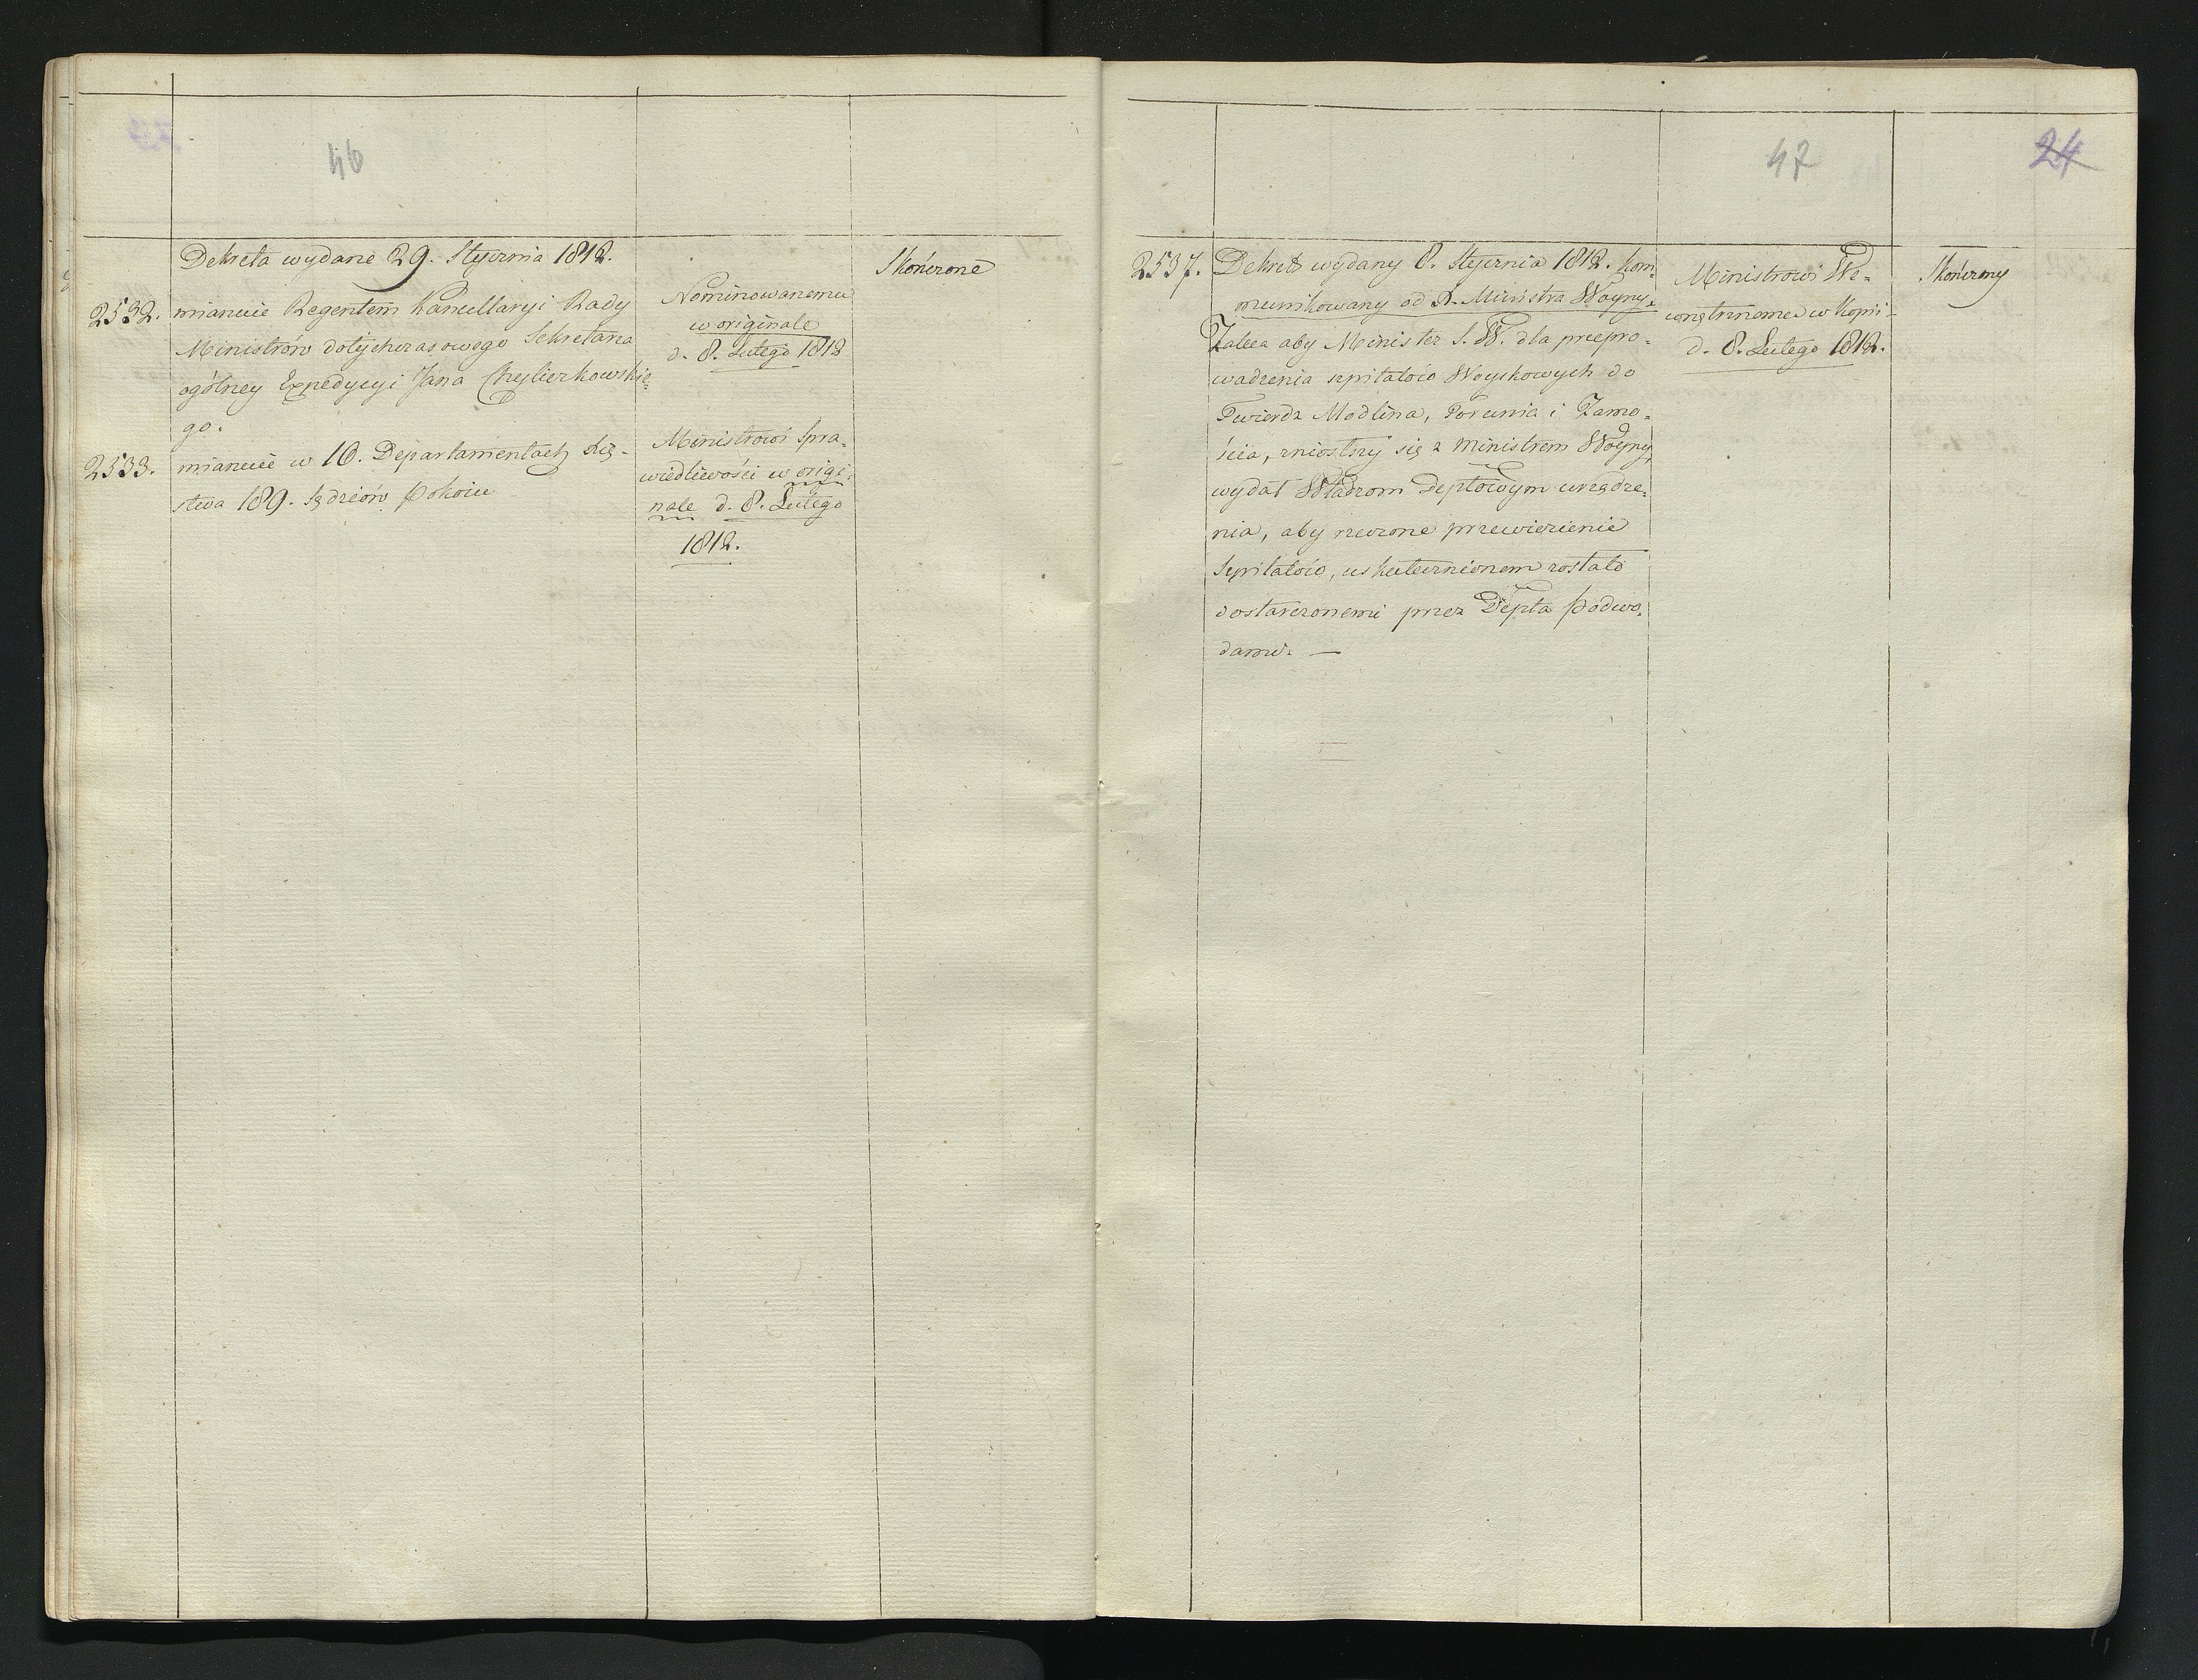 46
Dekreta wydane 29. Stycznia 1812.
Skończone
2532.
mianuie Regentem Kancellaryi Rady
Ministrów dotychczasowego Sekretarza
ogólney Expedycyi Jana Chyliczkowskie-
go.
Nominowanemu
w originale
d. 8. Lutego 1812
2533.
mianuie w 10. Departamentach Xię-
stwa 189. Sędziów Pokoiu
Ministrowi Spra-
wiedliwości w origi-
nale d. 8. Lutego
1812.
47
24
2537.
Dekret wydany 8. Stycznia 1812. kom-
munikowany od Ministra Woyny.
Zaleca aby Minister S. W. dla przepro-
wadzenia szpitalów Woyskowych do
Twierdz Modlina, Torunia i Zamo-
ścia, zniosłszy się z Ministrem Woyny,
wydał Władzom Deptowym urządze-
nia, aby rzeczone przewiezienie
Szpitalów, uskutecznionem zostało
dostarczonemi przez Depta podwo-
dami. —
Ministrowi We-
wnętrznemu w Kopii
d. 8. Lutego 1812.
Skończony